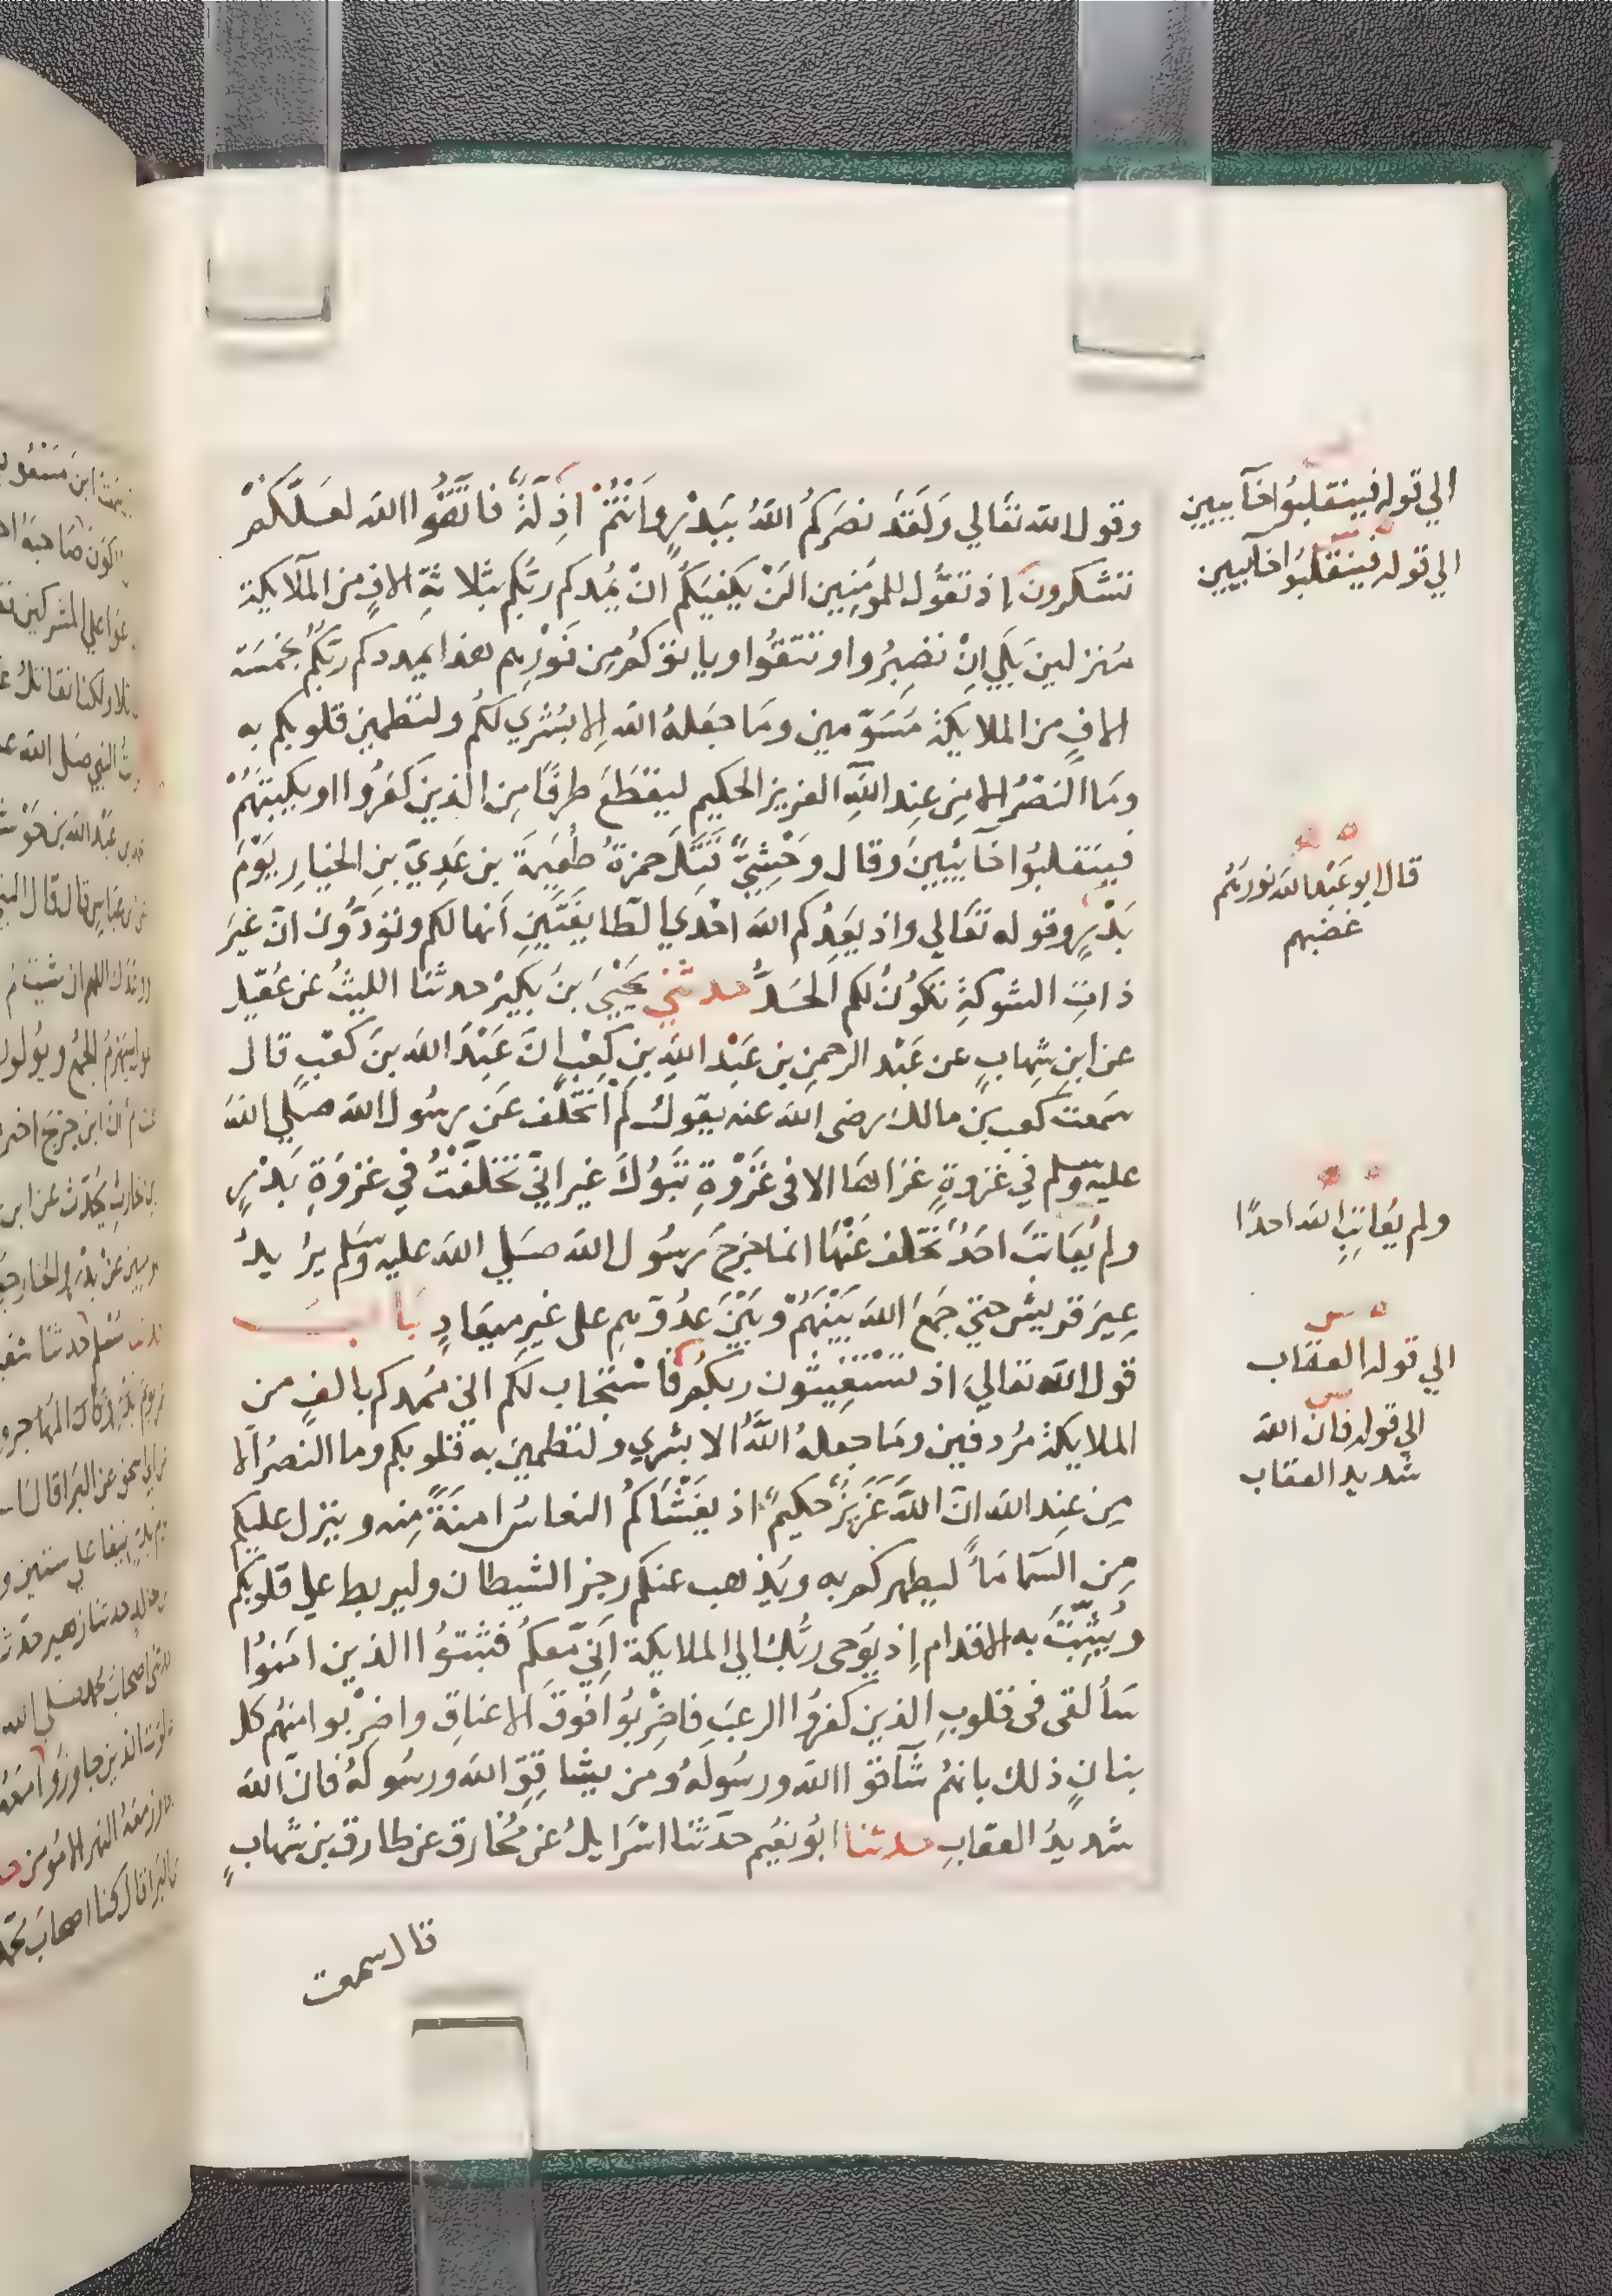 وقول الله تعالي وَلَقَدْ نصَرَكُم اللهُ بِبَدْرٍ وَاَنْتُمْ اَذِلَّةٌ فاتَّقُوا الله لعَلَّكُمْ
تشكرونَ إذ تقُول للمومنِين الَنْ يَكفيَكُم انْ يُمِدكم ربُّكم بثلاثةِ الافٍ من الملايكة
مُنزلينَ بَلَي اِنْ تَصْبِرُوا وتتقُوا وياتوكُم مِن فَوْرِهم هذا يمددكم ربُّكُمْ بخمسَة
الافٍ من الملايكة مُسَوّمين ومَا جعَلهُ الله اِلا بُشرَي لكُم ولتطمين قلوبكم به
ومَا النَصْرُ الا مِن عِندِ اللهِ العزيز الحكيم ليقْطَعَ طرفًا مِن الذينَ كفرُوا او يكبِتَهُمْ
فينقلبُوا خَآيبِينَ وقال وَحْشِيٌّ قَتَلَ حمزةُ طُعَيْمَةَ بن عَدِيّ بنِ الخيارِ يَوْمَ
بَدْرٍ وقوله تعَالي واذ يَعِدُكم الله احْدَي الطايفَتَينِ اَنها لكم وتوَدُّونَ انّ غيرَ
ذاتِ الشوكةِ تكُونُ لكم الحَدّ حدثني يَحْيَي بنُ بُكيرْ حدثنا الليثُ عن عُقَيْلٍ
عن ابنِ شِهابٍ عن عَبْد الرحمنِ بن عَبْد اللهِ بنِ كعْبٍ انَّ عَبْدَ الله بنَ كعْبٍ قال
سَمعت كعبَ بن مالك رضى الله عنه يقولُ لم اتَخَلَّف عَن رسُول الله صلي الله
عليه وسلم في غزوةٍ غزَاهَا الا فى غَزْوَةِ تَبُوكَ غير انّي تخلَّفتُ في غزوَةِ بَدْرٍ
ولم يُعَاتَبَ احَدٌ تَخَّلف عَنْهَا انما خرجَ رسُول الله صَلي الله عليه وسَلم يرُيدُ
عِيرَ قريش حتي جَمَعَ الله بَيْنَهُمْ وبَيْنَ عدُوّهم على غيرِ ميعَادٍ بَابُ
قول الله تعالي اذ تستغيثون ربكُم فاسْتجَاب لكم اني ممُدكم بالفٍ من
الملايكة مُردفين ومَا جعلهُ اللهُ الا بشري ولتطمينَ به قلوبكم وما النصرُ اِلا
مِن عِندِ الله انّ اللهَ عَزيزٌ حكيمٌ اذ يغَشّاكُم النعاسَ امَنَةً مِنه وينزل عليكم
مِن السَمَا مَاً ليطهركم به ويُذهب عنكم رجز الشيطان وليربط على قلوبكم
ويُثبِّتَ به الاقدام اِذ يوحى ربُّك الي الملايكة اَنِّي معكُم فثبّتُوا الذين امَنوُا
سَأُلقى فى قلوبِ الذين كفرُوا الرعبَ فاضِرْبوُا فوقَ الاعناقِ واضربُوا منهُم كل
بنانٍ ذلك بانهُم شَآقوا الله ورسُولَهُ ومن يشاقِقِ الله ورسُولهُ فانّ الله
شديدُ العقابِ حدثنا ابُو نعُيم حدّثنا اسْرَايلُ عن مُخارق عن طارق بن شهابٍ
قال سمعت
الي قوله فينقلبُوا خآيبين
الي قوله فينقلبُوا خآيبين
قال ابو عَبْد الله فورهم
غضبهم
ولم يُعَاتِبِ الله احدًا
الي قوله العقاب
الي قوله فان الله
شديد العقاب